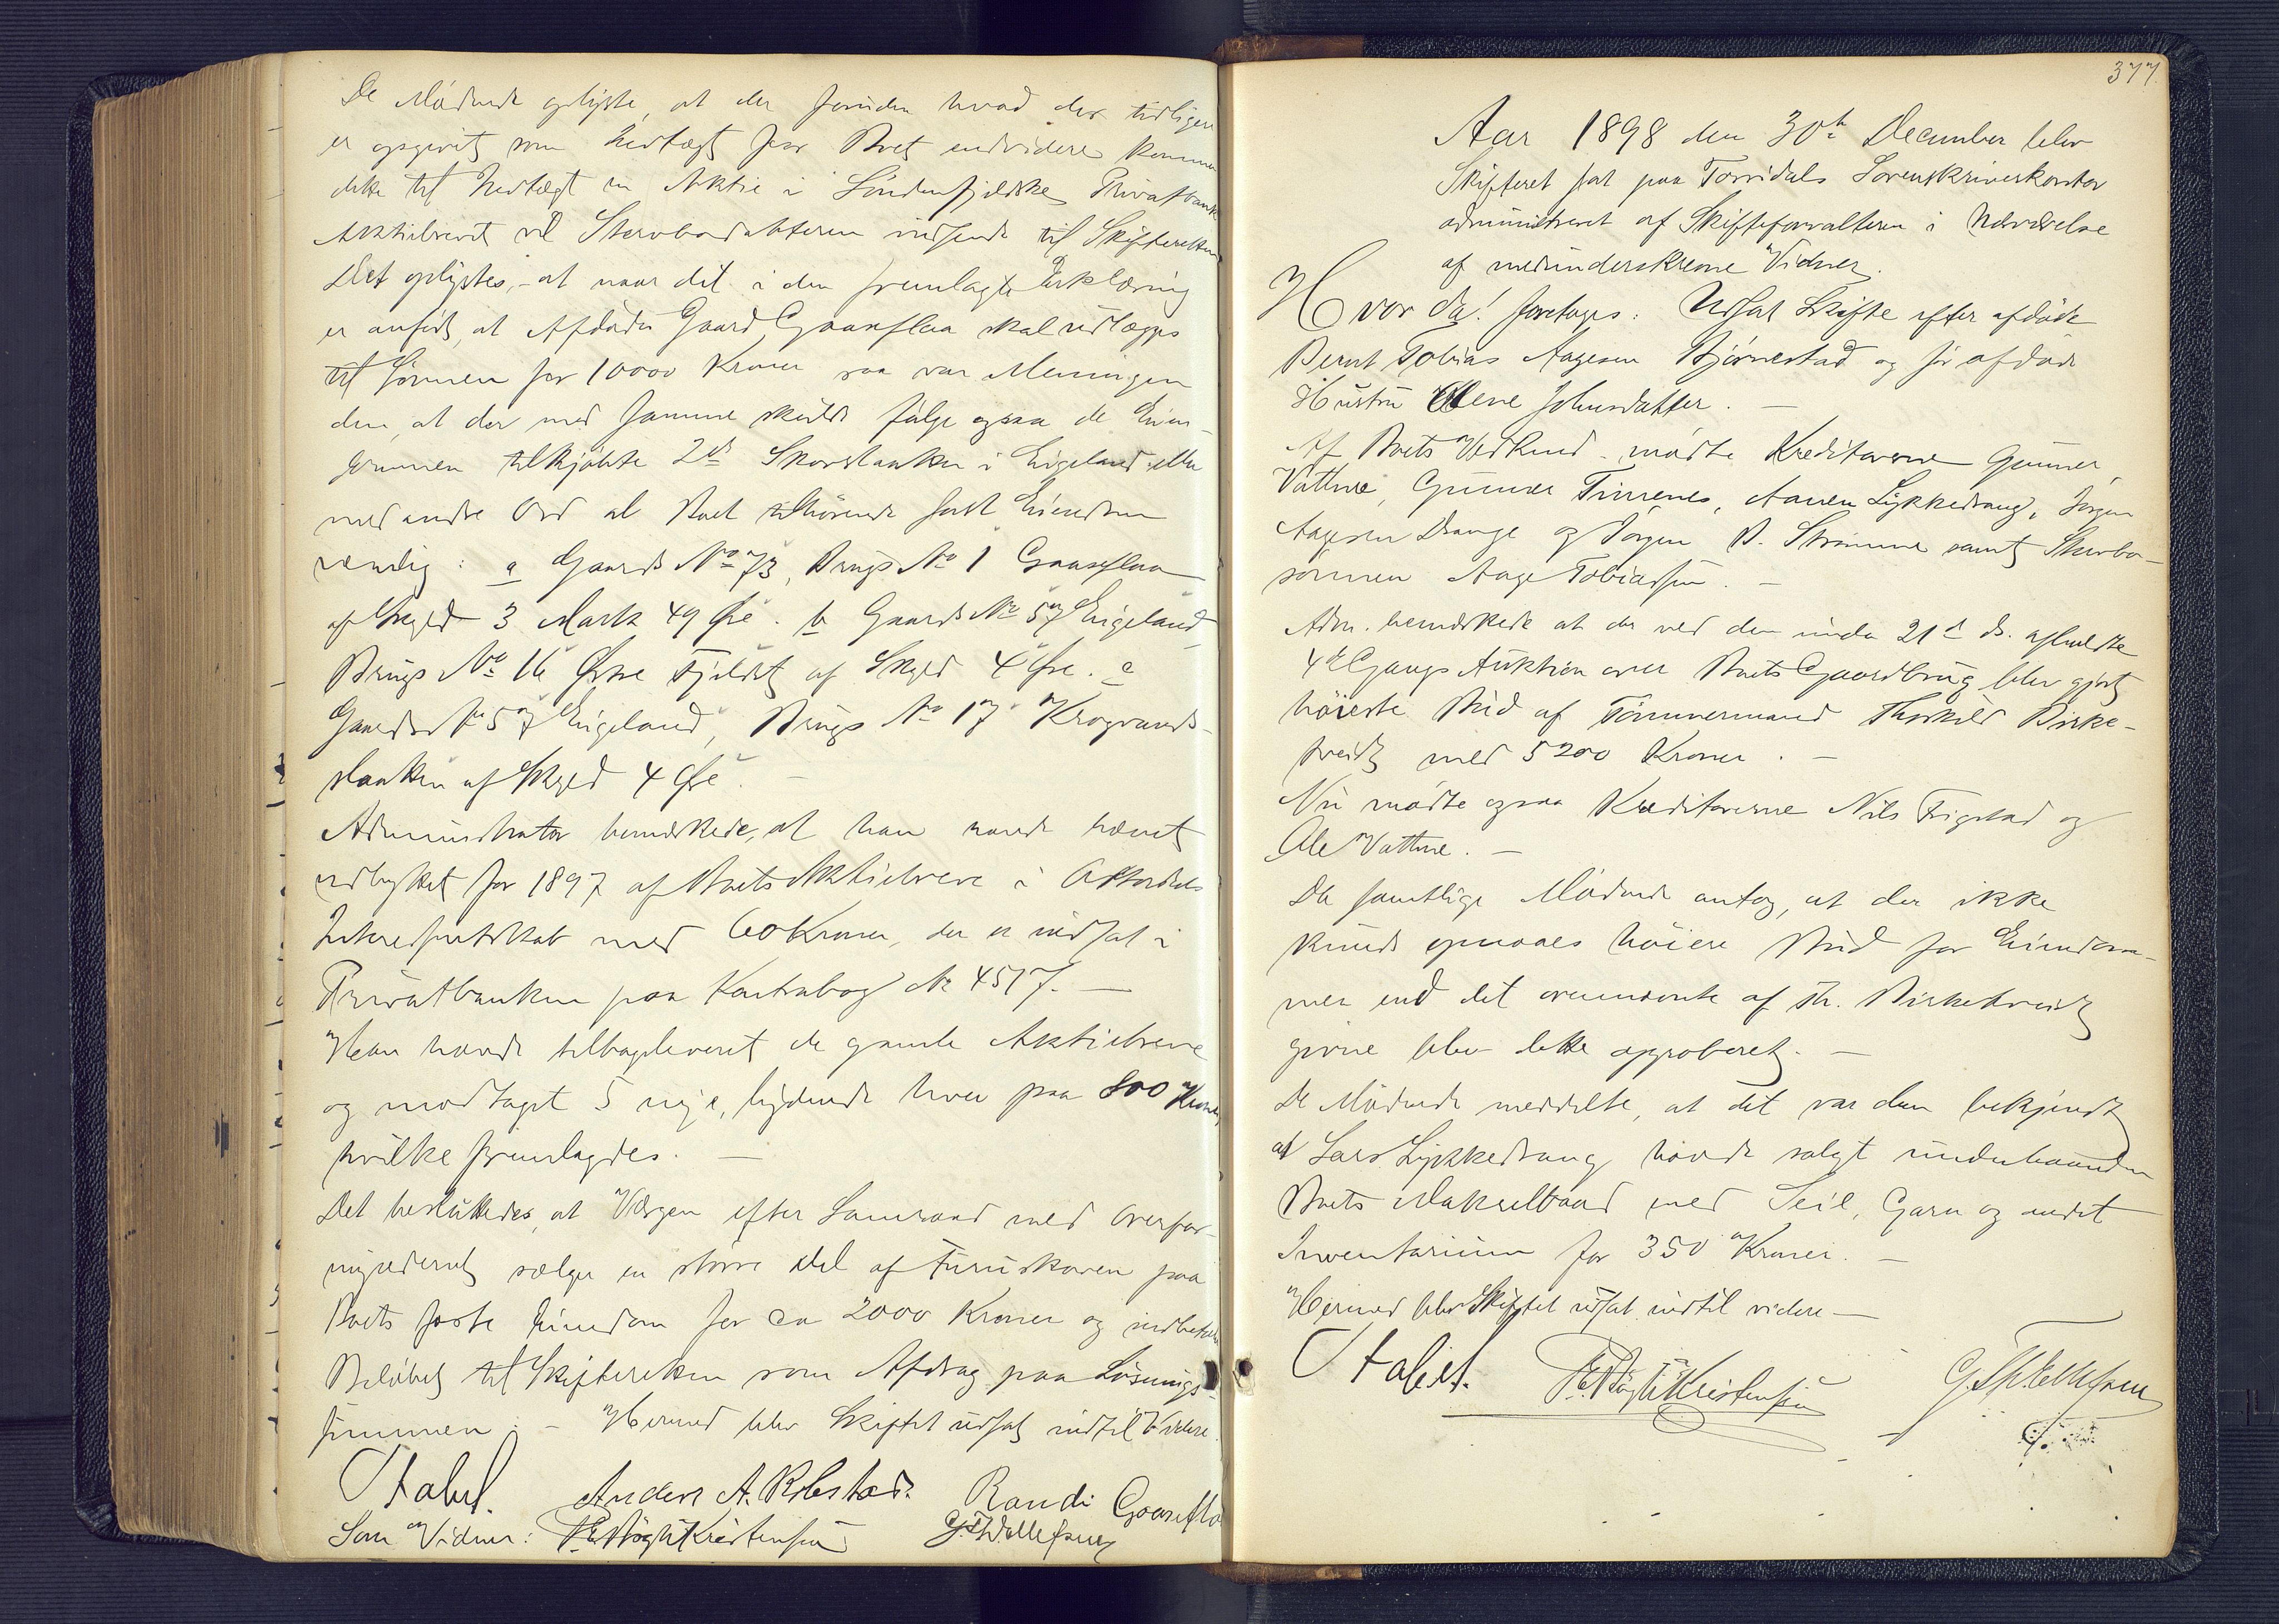 De Mødende oplyste, at der foruden hvad der tidligere
er opgivet som Indtægt for Boet endvidere kommer
dette til Indtægt en Aktie i Søndenfjeldske Privatbank
Aktiebrevet vil Stervbodatteren indsende til Skifteretten
Det oplystes, at naar det i den fremlagte Erklæring
er anført, at Afdødes Gaard Gaaseflaa skal udlægges
til Sønnen for 10000 Kroner saa var Meningen
den, at der med samme skulde følge ogsaa de Eien-
dommen tilkjøbte 2de Skovstykker i Eigeland eller
med andre Ord al Boet tilhørende fast Eiendom
nemlig: a Gaards No 73, Brugs No 1 Gaaseflaa
af Skyld 3 Mark 49 Øre. b Gaards No 57 Eigeland
Brugs No 16 Øvre Fjeldet af Skyld 4 Øre. c
Gaards No 57 Eigeland, Brugs No 17 Krogvands-
af Skyld 4 Øre
Administrator bemærkede, at han havde hævet
udbyttet for 1897 af Boets Aktiebreve i
Interessentskab med 60 Kroner, der er indsat i
Privatbanken paa Kontrabog No 4517. —
Han havde tilbageleveret de gamle Aktiebreve
og modtaget 5 nye, lydende hver paa 800 Kroner
hvilke fremlagdes. —
Det besluttedes, at Værgen efter Samraad med Overfor-
mynderiet sælger en større Del af Furuskoven paa
Boets faste Eiendom for ca 2000 Kroner og indbetaler
Beløbet til Skifteretten som Afdrag paa Løsnings-
summen. — Hermed blev Skiftet udsat indtil Videre.
Stabel. Anders A. Robstad. Randi Gaaseflaa
Som Vidner: Kristensen
377
Aar 1898 den 30te December blev
Skifteret sat paa Torridals Sorenskriverkontor
administreret af Skifteforvalteren i Nærværelse
af medunderskrevne Vidner.
Hvor da! foretoges: Udsat Skifte efter afdøde
Bernt Tobias Aagesen Bjørnestad og før afdøde
Hustru Olene Johnsdatter. —
Af Boets Vedkomd. mødte Kreditorerne Gunner
Vatne, Gunner Tinnenes, Aanen Lykkedrang, Jørgen
Aagesen Drange og Jørgen B. Strømme samt Stervbo-
sønnen Aage Tobiassen. —
Adm. bemærkede at der ved den under 21de ds. afholdte
4de Gangs Auktion over Boets Gaardbrug blev gjort
høieste Bud af Tømmermand Thorkild Birke-
tveit med 5200 Kroner. —
Nu mødte ogsaa Kreditorerne Nils Frigstad og
Ole Vatne. —
Da samtlige Mødende antog, at der ikke
kunde opnaaes høiere Bud for Eiendom-
men end det ovennævnte af Th. Birketveit
givne blev dette approberet. —
De Mødende meddelte, at det var dem bekjendt
at Lars Lykkedrang havde solgt underhaanden
Boets Makrelbaad med Seil, Garn og andet
Inventarium for 350 Kroner. —
Hermed blev Skiftet udsat indtil videre —
Stabel. Kristensen